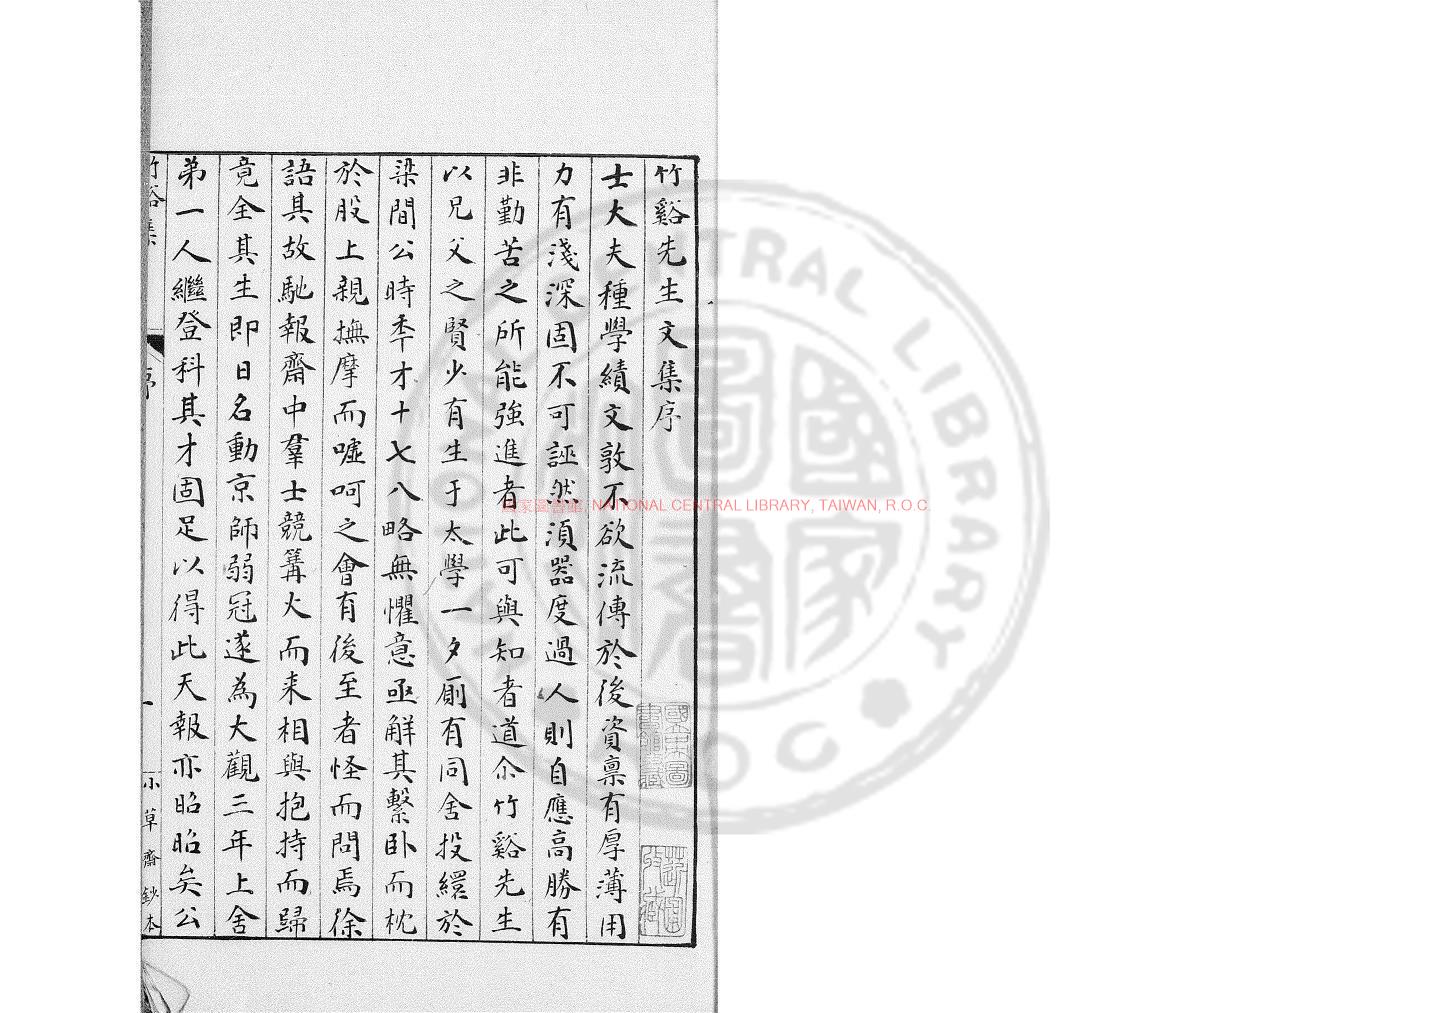 竹谿先生文集序
士大夫種學績文敦不欲流傳於後資稟有厚薄用
力有淺深固不可誣然湏器度過人則自應高勝有
非勤苦之所能強進者此可與知者道尒竹谿先生
以兄父之賢少有生于太學一夕廁有同舍投繯於
梁間公時秊才十七八略無懼意亟解其繫卧而枕
於股上親撫摩而噓呵之會有後至者怪而問焉徐
語其故馳報齋中羣士競篝火而来相與抱持而歸
竟全其生即日名動京師弱冠遂為大觀三年上舍
弟一人繼登科其才固足以得此天報亦昭昭矣公
竹谿集
序
一
小草齋鈔本
國家圖書館, NATIONAL CENTRAL LIBRARY, TAIWAN, R.O.C.
NATIONAL CENTRAL LIBRARY
ROC
國家圖書館